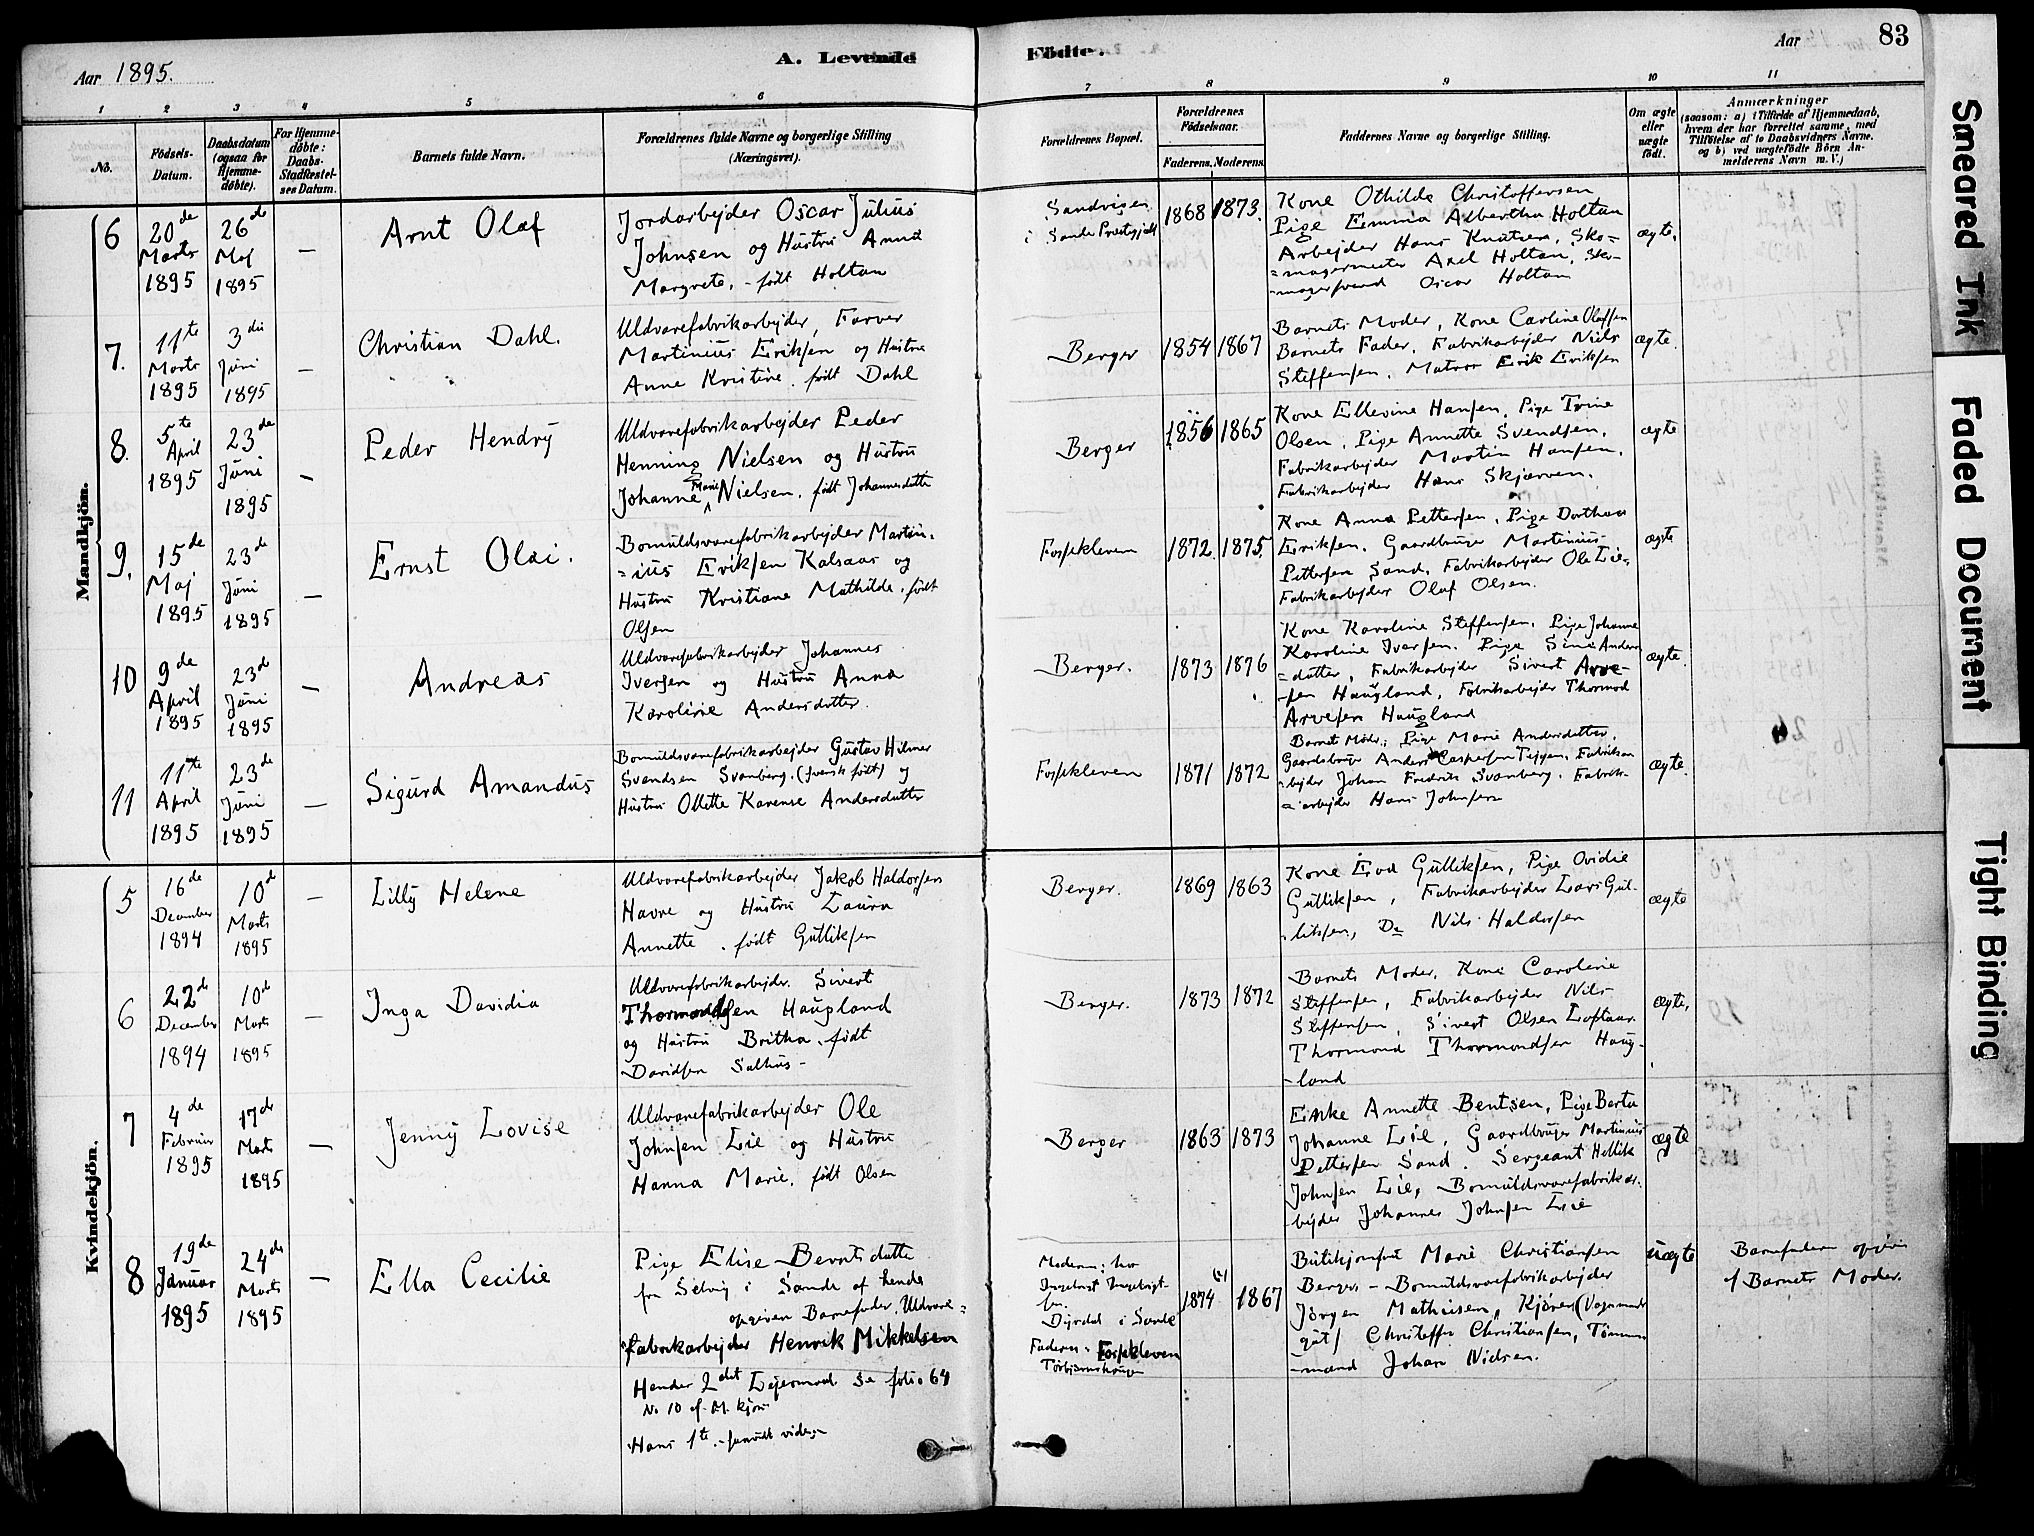 Aar 1895.
A. Levende
Fødte.
Aar
83
1
2
3
4
5
6
7
8
9
10
11
No.
Fødsels-
Datum.
Daabsdatum
(ogsaa for
Hjemme-
døbte).
For Hjemme-
døbte:
Daabs-
Stadfæstel-
ses Datum.
Barnets fulde Navn.
Forældrenes fulde Navne og borgerlige Stilling
(Næringsvei).
Forældrenes Bopæl.
Forældrenes
Fødselsaar.
Faderens.
Moderens.
Faddernes Navne og borgerlige Stilling.
Om ægte
eller
uægte
født.
Anmærkninger
(saasom: a) i Tilfælde af Hjemmedaab,
hvem der har forrettet samme, med
Tilføielse af to Daabsvidners Navne.
og b) ved uægtefødte Børn An-
melderens Navn m. V.)
Mandkjön.
6
20de
Marts
1895
26de
Maj
1895
—
Arnt Olaf
Jordarbejder Oscar Julius
Johnsen og Hustru Anna
Margrete, - født Holtan
Sandvigen
i Sande Præstegjeld
1868
1873.
Kone Othilde Christoffersen
Pige Emma Albertha Holtan
Arbejder Hans Knutsen, Sko-
=magermester Axel Holtan, Sko-
=magersvend Oscar Holtan
ægte.
7.
11te
Marts
1895
3die
Juni
1895
—
Christian Dahl.
Uldvarefabrikarbejder, Farver
Martinius Eriksen og Hustru
Anne Kristine, født Dahl
Berger
1854
1867
Barnets Moder, Kone Carline Olaffsen
Barnets Fader, Fabrikarbejder Nils
Steffensen, Matros Erik Eriksen
ægte.
8.
5te
April
1895
23de
Juni
1895
—
Peder Hendry
Uldvarefabrikarbejder Peder
Henning Nielsen og Hustru
Johanne Marie Nielsen, født Johannesdatter
Berger
1856
1865
Kone Ellevine Hansen, Pige Trine
Olsen, Pige Annette Svendsen,
Fabrikarbejder Martin Hansen,
Fabrikarbejder Hans Skjærven.
ægte
9.
15de
Maj
1895
23de
Juni
1895
—
Ernst Olai.
Bomuldsvarefabrikarbejder Martin-
=ius Eriksen Kalsaas og
Hustru Kristiane Mathilde, født
Olsen
Fossekleven
1872.
1875.
Kone Anna Pettersen, Pige Dorthea
Eriksen, Gaardbruger Martinius
Pettersen Sand, Fabrikarbejder Ole Lie,
Fabrikarbejder Olaf Olsen.
ægte
10
9de
April
1895
23de
Juni
1895
—
Andreas
Uldvarefabrikarbejder Johannes
Iversen og Hustru Anna
Karoline Andersdatter.
Berger.
1873
1876
Kone Karoline Steffensen, Pige Johanne
Karoline Iversen, Pige Sine Anders
=datter, Fabrikarbejder Sivert Arve-
-sen Haugland, Fabrikarbejder Thormod
Arvesen Haugland
ægte.
11
11te
April
1895
23de
Juni
1895
—
Sigurd Amandus
Bomuldsvarefabrikarbejder Gustav Hilmer
Svendsen Svanberg, (svensk født) og
Hustru Olette Karense Andersdatter
Fossekleven
1871
1872
Barnets Moder, Pige Marie Andersdatter,
Gaardbruger Anders Caspersen Teigen, Fabrikar
-bejder Johan Fredrik Svanberg, Fabrik-
=arbejder Hans Johnsen
ægte.
Kvindekjön.
5
16de
December
1894
10de
Marts
1895
—
Lilly Helene
Uldvarefabrikarbejder Jakob Haldorsen
Havre og Hustru Laura
Annette, født Gulliksen
Berger.
1869
1863
Kone Eva Gulliksen, Pige Ovidie
Gulliksen, Fabrikarbejder Lars Gul-
-liksen, Do Nils Haldorsen
ægte
6
22de
December
1894
10de
Marts
1895
—
Inga Davidia
Uldvarefabrikarbejder Sivert
Thormodsen Haugland
og Hustru Britha, født
Davidsen Salhus -
Berger.
1873
1872
Barnets Moder, Kone Caroline
Steffensen, Fabrikarbejder Nils
Steffensen, Sivert Olsen Loftaas
Thormond Thormondsen Haug-
-land
ægte,
7
4de
Februar
1895
17de
Marts
1895
—
Jenny Lovise
Uldvarefabrikarbejder Ole
Johnsen Lie og Hustru
Hanna Marie, født Olsen
Berger
1863
1873
Enke Annette Bentsen, Pige Berta
Johanne Lie, Gaardbruger Martinius
Pettersen Sand, Sergeant Hellik
Johnsen Lie, Bomuldsvarefabrikar-
bejder Johannes Johnsen Lie
ægte
8
19de
Januar
1895
24de
Marts
1895
—
Ella Cecilie
Pige Elise Berntsdatter
fra Selvig i Sande af hende
opgiven Barnefader, Uldvare=
fabrikarbejder Henrik Mikkelsen
Hendes 2det Lejermaal se folio 64
No 10 af M. kjøn
Hans 1te -
Moderen: hos
Dyrdal i Sande
Faderen: Fossekleven
1874
1867
Butikjomfru Marie Christiansen
Berger, - Bomuldsvarefabrikarbejder
Jørgen Mathisen, Kjører (Vognmand
Christoffer Christiansen, Tømmer-
=mand Johan Nielsen.
uægte
Barnefaderen opgivet
af Barnets Moder.
Smeared Ink
Faded Document
Tight Binding